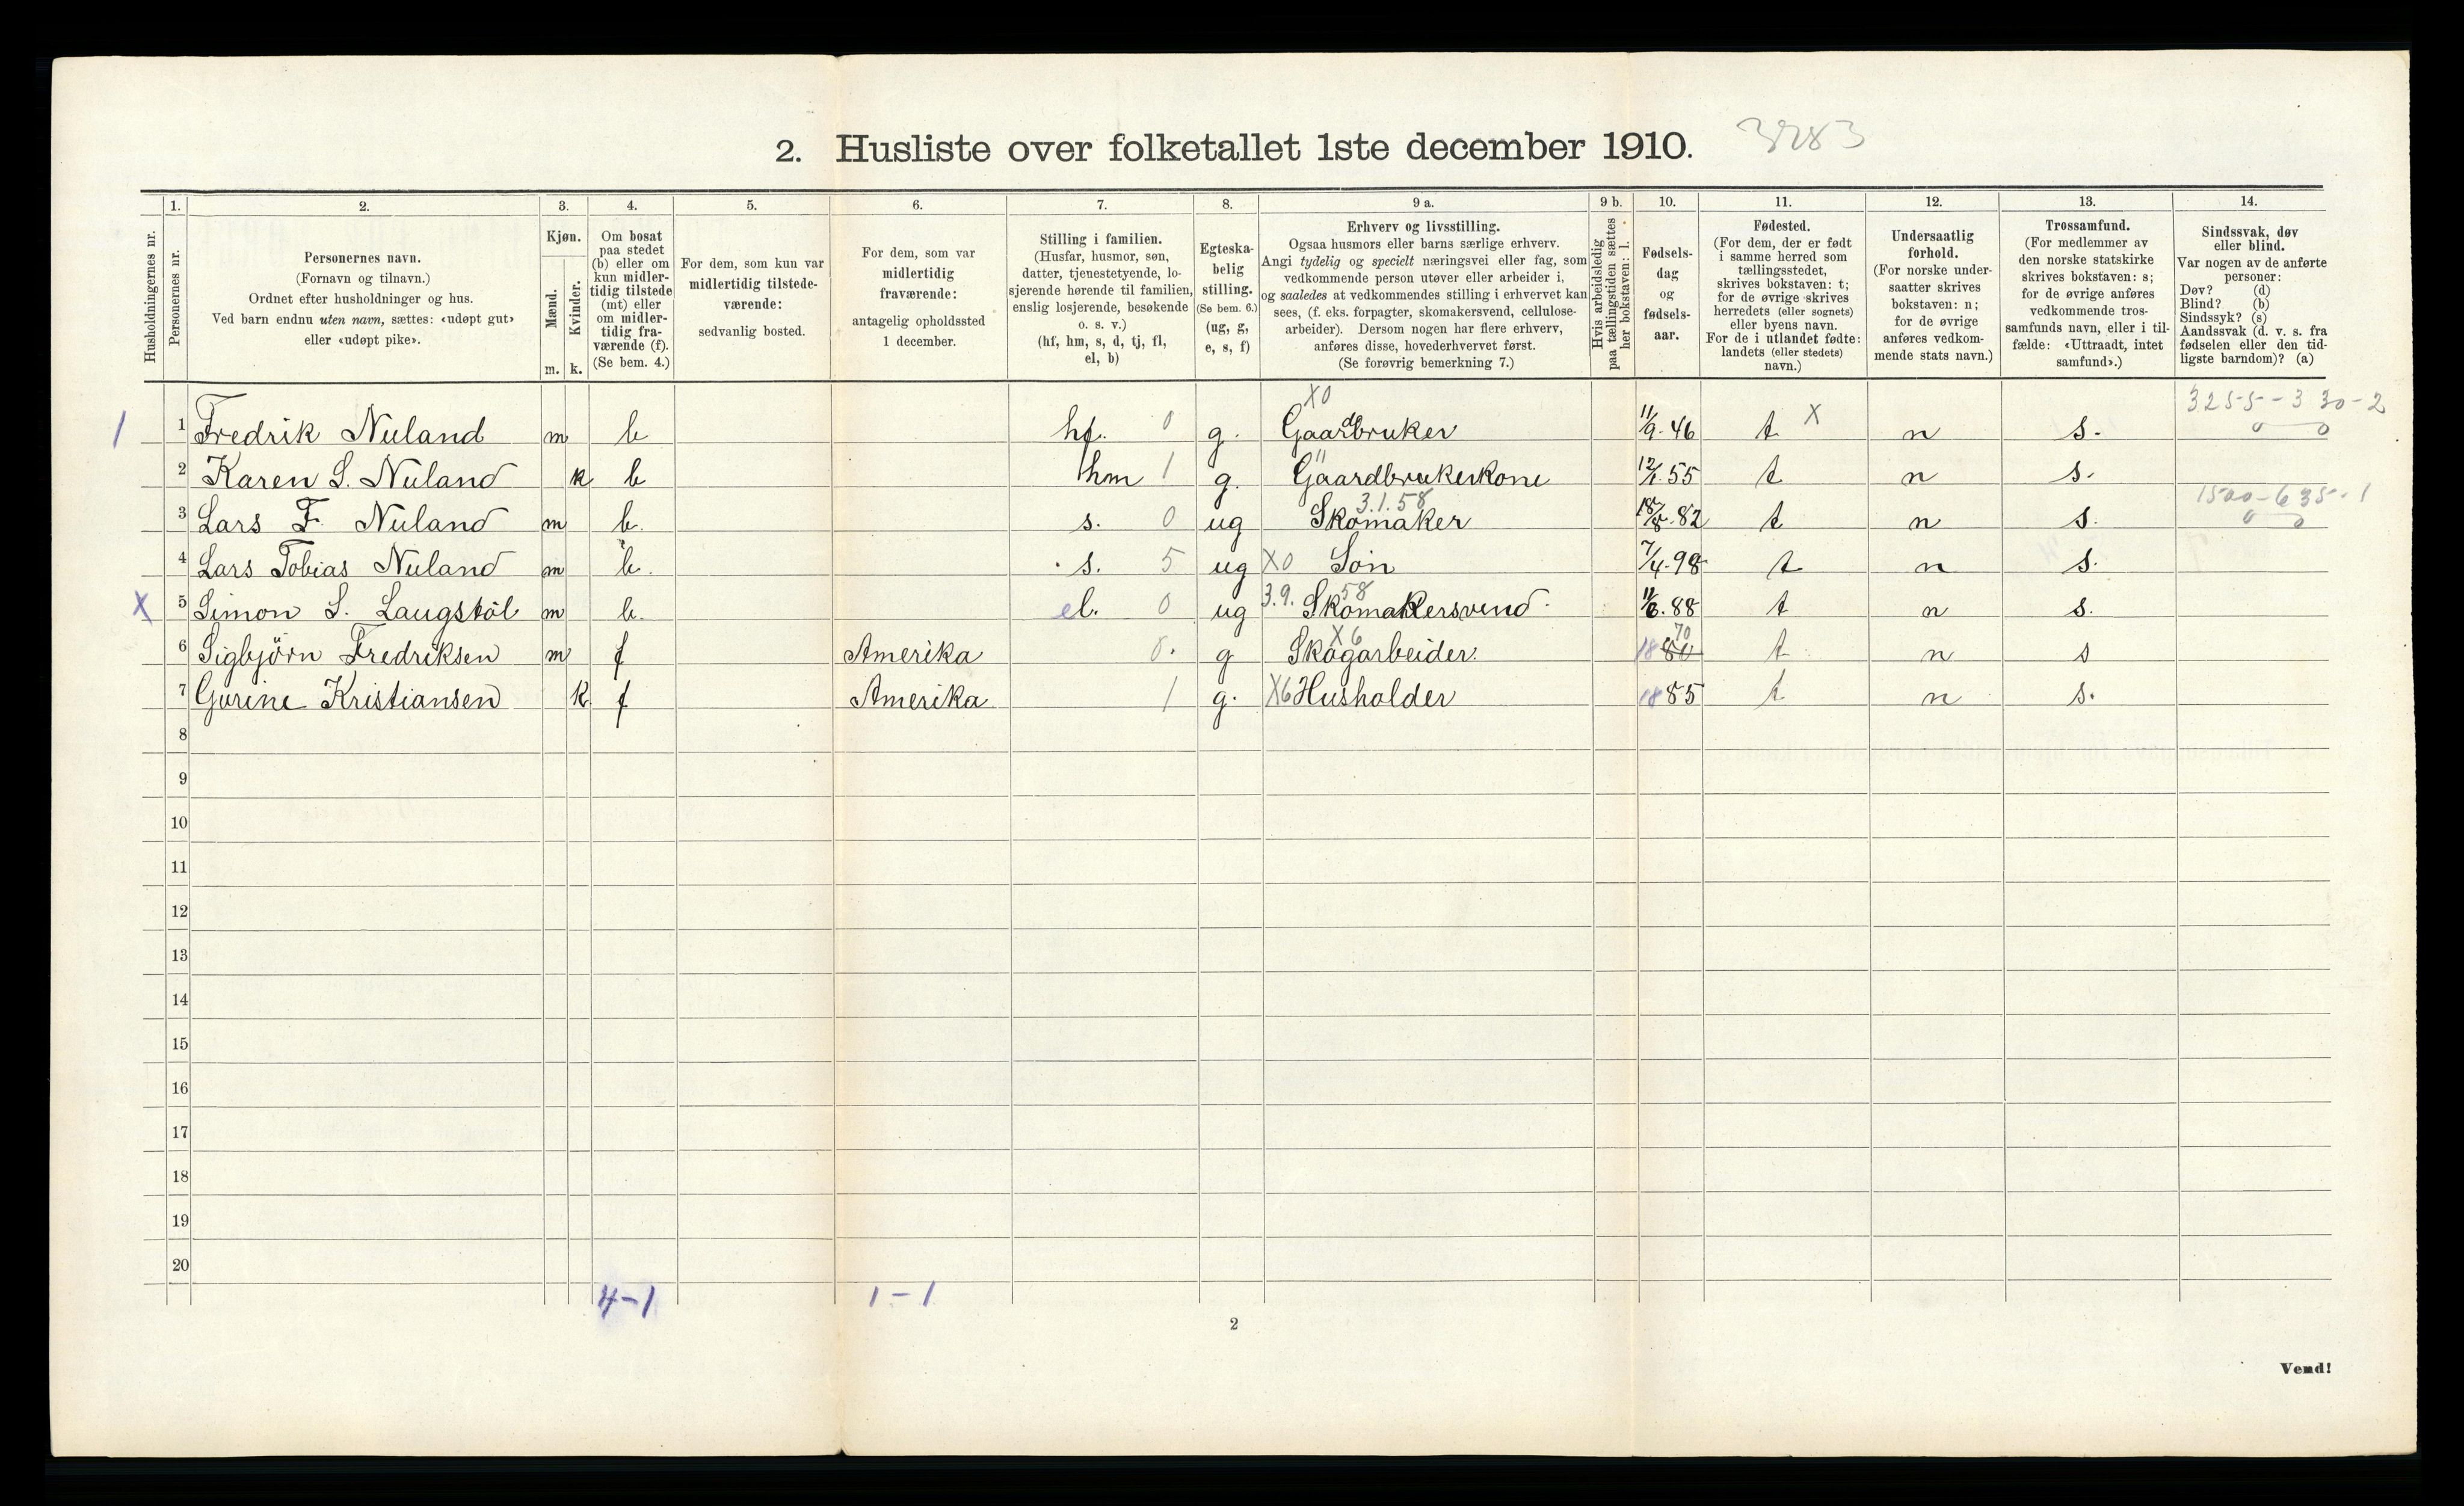 2. Husliste over folketallet 1ste december 1910. 3283
1. 2. 3. 4. 5. 6. 7. 8. 9 a. 9 b. 10. 11. 12. 13. 14.
Husholdningernes nr.
Personernes nr.
Personernes navn.
(Fornavn og tilnavn.)
Ordnet efter husholdninger og hus.
Ved barn endnu uten navn, sættes: «udøpt gut»
eller «udøpt pike».
Kjøn.
Mænd.
Kvinder.
m. k.
Om bosat
paa stedet
(b) eller om
kun midler-
tidig tilstede
(mt) eller
om midler-
tidig fra-
værende (f).
(Se bem. 4.)
For dem, som kun var
midlertidig tilstede-
værende:
sedvanlig bosted.
For dem, som var
midlertidig
fraværende:
antagelig opholdssted
1 december.
Stilling i familien.
(Husfar, husmor, søn,
datter, tjenestetyende, lo-
sjerende hørende til familien,
enslig losjerende, besøkende
o. s. v.)
(hf, hm, s, d, tj, fl,
el, b)
Egteska-
belig
stilling.
(Se bem. 6.)
(ug, g,
e, s, f)
Erhverv og livsstilling.
Ogsaa husmors eller barns særlige erhverv.
Angi tydelig og specielt næringsvei eller fag, som
vedkommende person utøver eller arbeider i,
og saaledes at vedkommendes stilling i erhvervet kan
sees, (f. eks. forpagter, skomakersvend, cellulose-
arbeider). Dersom nogen har flere erhverv,
anføres disse, hovederhvervet først.
(Se forøvrig bemerkning 7.)
Hvis arbeidsledig
paa tællingstiden sættes
her bokstaven: l.
Fødsels-
dag
og
fødsels-
aar.
Fødested.
(For dem, der er født
i samme herred som
tællingsstedet,
skrives bokstaven: t;
for de øvrige skrives
herredets (eller sognets)
eller byens navn.
For de i utlandet fødte:
landets (eller stedets)
navn.)
Undersaatlig
forhold.
(For norske under-
saatter skrives
bokstaven: n;
for de øvrige
anføres vedkom-
mende stats navn.)
Trossamfund.
(For medlemmer av
den norske statskirke
skrives bokstaven: s;
for de øvrige anføres
vedkommende tros-
samfunds navn, eller i til-
fælde: «Uttraadt, intet
samfund».)
Sindssvak, døv
eller blind.
Var nogen av de anførte
personer:
Døv? (d)
Blind? (b)
Sindssyk? (s)
Aandssvak (d. v. s. fra
fødselen eller den tid-
ligste barndom)? (a)
X0 3255-330-2
1 1 Fredrik Nuland m b hf. 0 g. Gaardbruker 11/9-46 t X n s. 0 0
2 Karen S. Nuland k b hm 1 g. Gaardbrukerkone 12/1 55 t n s.
3.1.58 1500-635-1
3 Lars F. Nuland m b. s. 0 ug Skomaker 18/8-82 t n s. 0 0
4 Lars Tobias Nuland m b. s. 5 ug X0 Sön 7/4-98 t n s.
X 5 Simon S. Laugstöl m b. el. 0 ug 3.9.58 Skomakersvend 11/6.88 t n s.
6 Sigbjörn Fredriksen m f Amerika 0. g X6 Skogarbeider. 1880 70 t n s
7 Gurine Kristiansen k f Amerika 1 g. X6 Husholder 1885 t n s.
8
9
10
11
12
13
14
15
16
17
18
19
20
4-1 1-1
2
Vend!